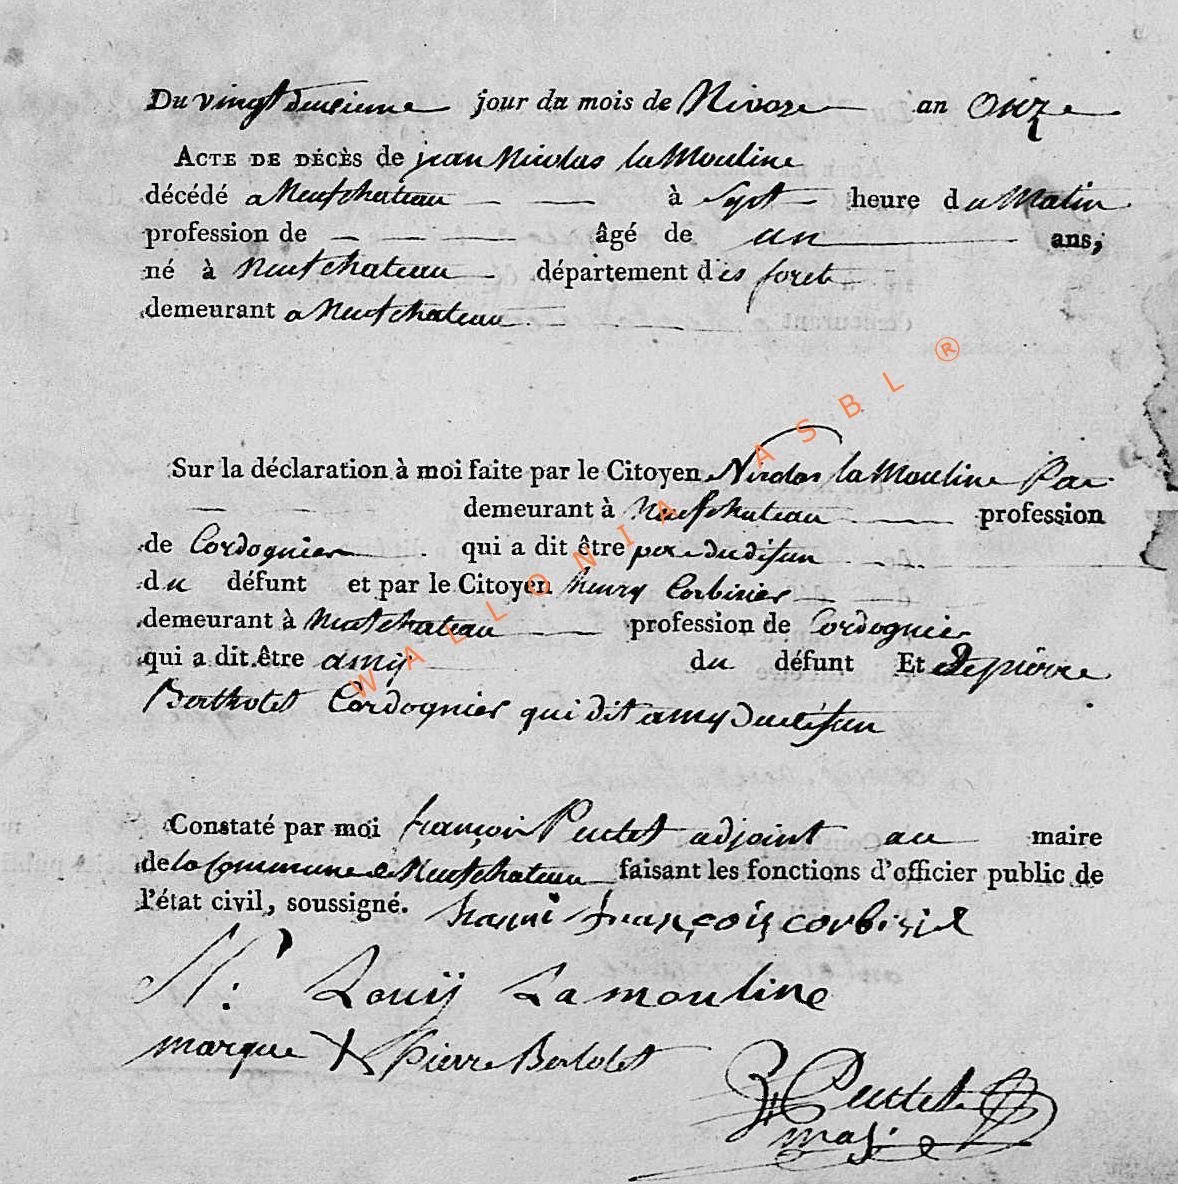 Du vingt deusieme jour du mois de Nivose an Onze
ACTE DE DÉCÈS de jean Nicolas la Mouline
décédé a Neufchateau à Sept heure du Matin
profession de âgé de un ans,
né à Neufchateau département des foret
demeurant a Neufchateau
Sur la déclaration à moi faite par le Citoyen Nicolas la Mouline
demeurant à Neufchateau profession
de Cordognier qui a dit être pere du difun
du défunt et par le Citoyen henry Corbisier
demeurant à Neufchateau profession de Cordognier
qui a dit être amy du défunt Et de pierre
Bertholet Cordognier qui dit amy du difun
Constaté par moi françois Puctet adjoint au maire
de la Commune de Neufchateau faisant les fonctions d'officier public de
l'état civil, soussigné. hanri françois corbisiel
N: Louis Lamouline
marque X pierre Bertolet
Puctet
WALLONIA ASBL ®